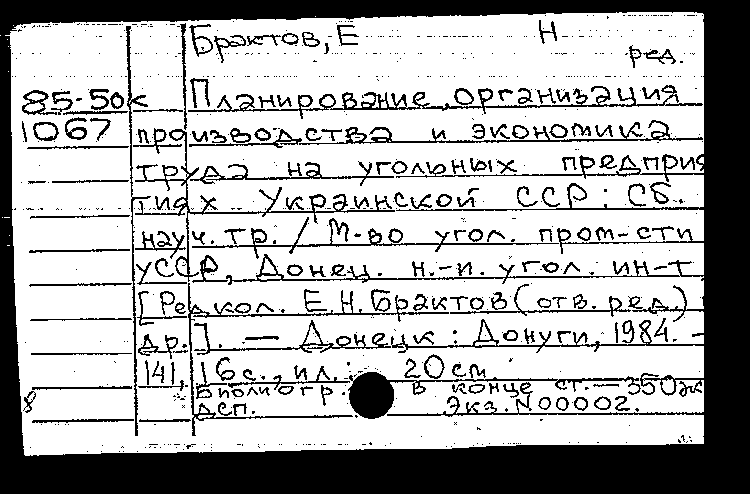 Брактов, Е Н
ред.
85-50к Планирование, организация
1067 производства и экономика
труда на угольных предприя
тиях Украинской ССР : Сб.
науч. тр. / М-во угол. пром-сти
УССР, Донец. н.-и. угол. ин-т
[Редкол. Е.Н. Брактов (отв. ред.)
др.]. — Донецк : Донуги, 1984. —
141, 16 с., ил. ; 20 см.
Библиогр. в конце ст. — 350 эк
8 ДСП. Экз. N 00002.